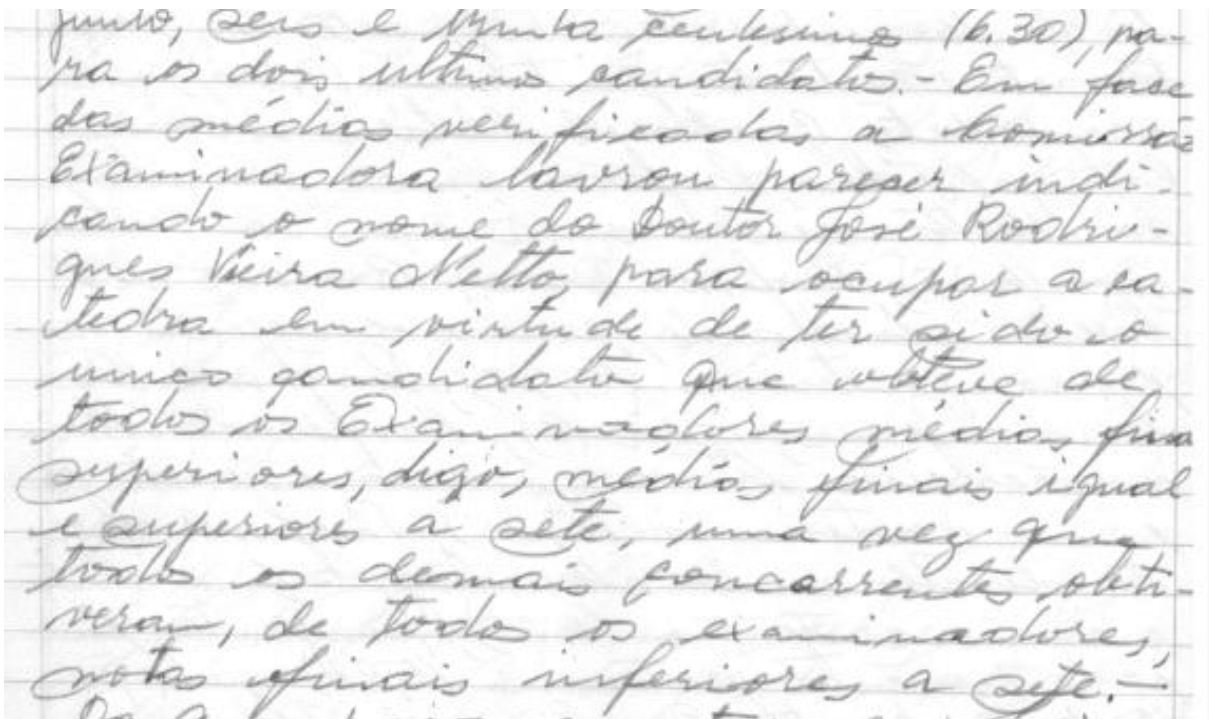 junto, seis e trinta centesimos (6.30), pa-
ra os dois ultimos candidatos.- Em face
das médias verificadas a Comissão
Examinadora lavrou parecer indi-
cando o nome do Doutor José Rodri-
gues Vieira Netto, para ocupar a ca-
tedra em virtude de ter sido o
unico candidato que obteve de
todos os Examinadores médias fina
superiores, digo, médias finais igual
e superiores a sete, uma vez que
todos os demais concorrentes obti-
veram, de todos os examinadores,
notas finais inferiores a sete.-